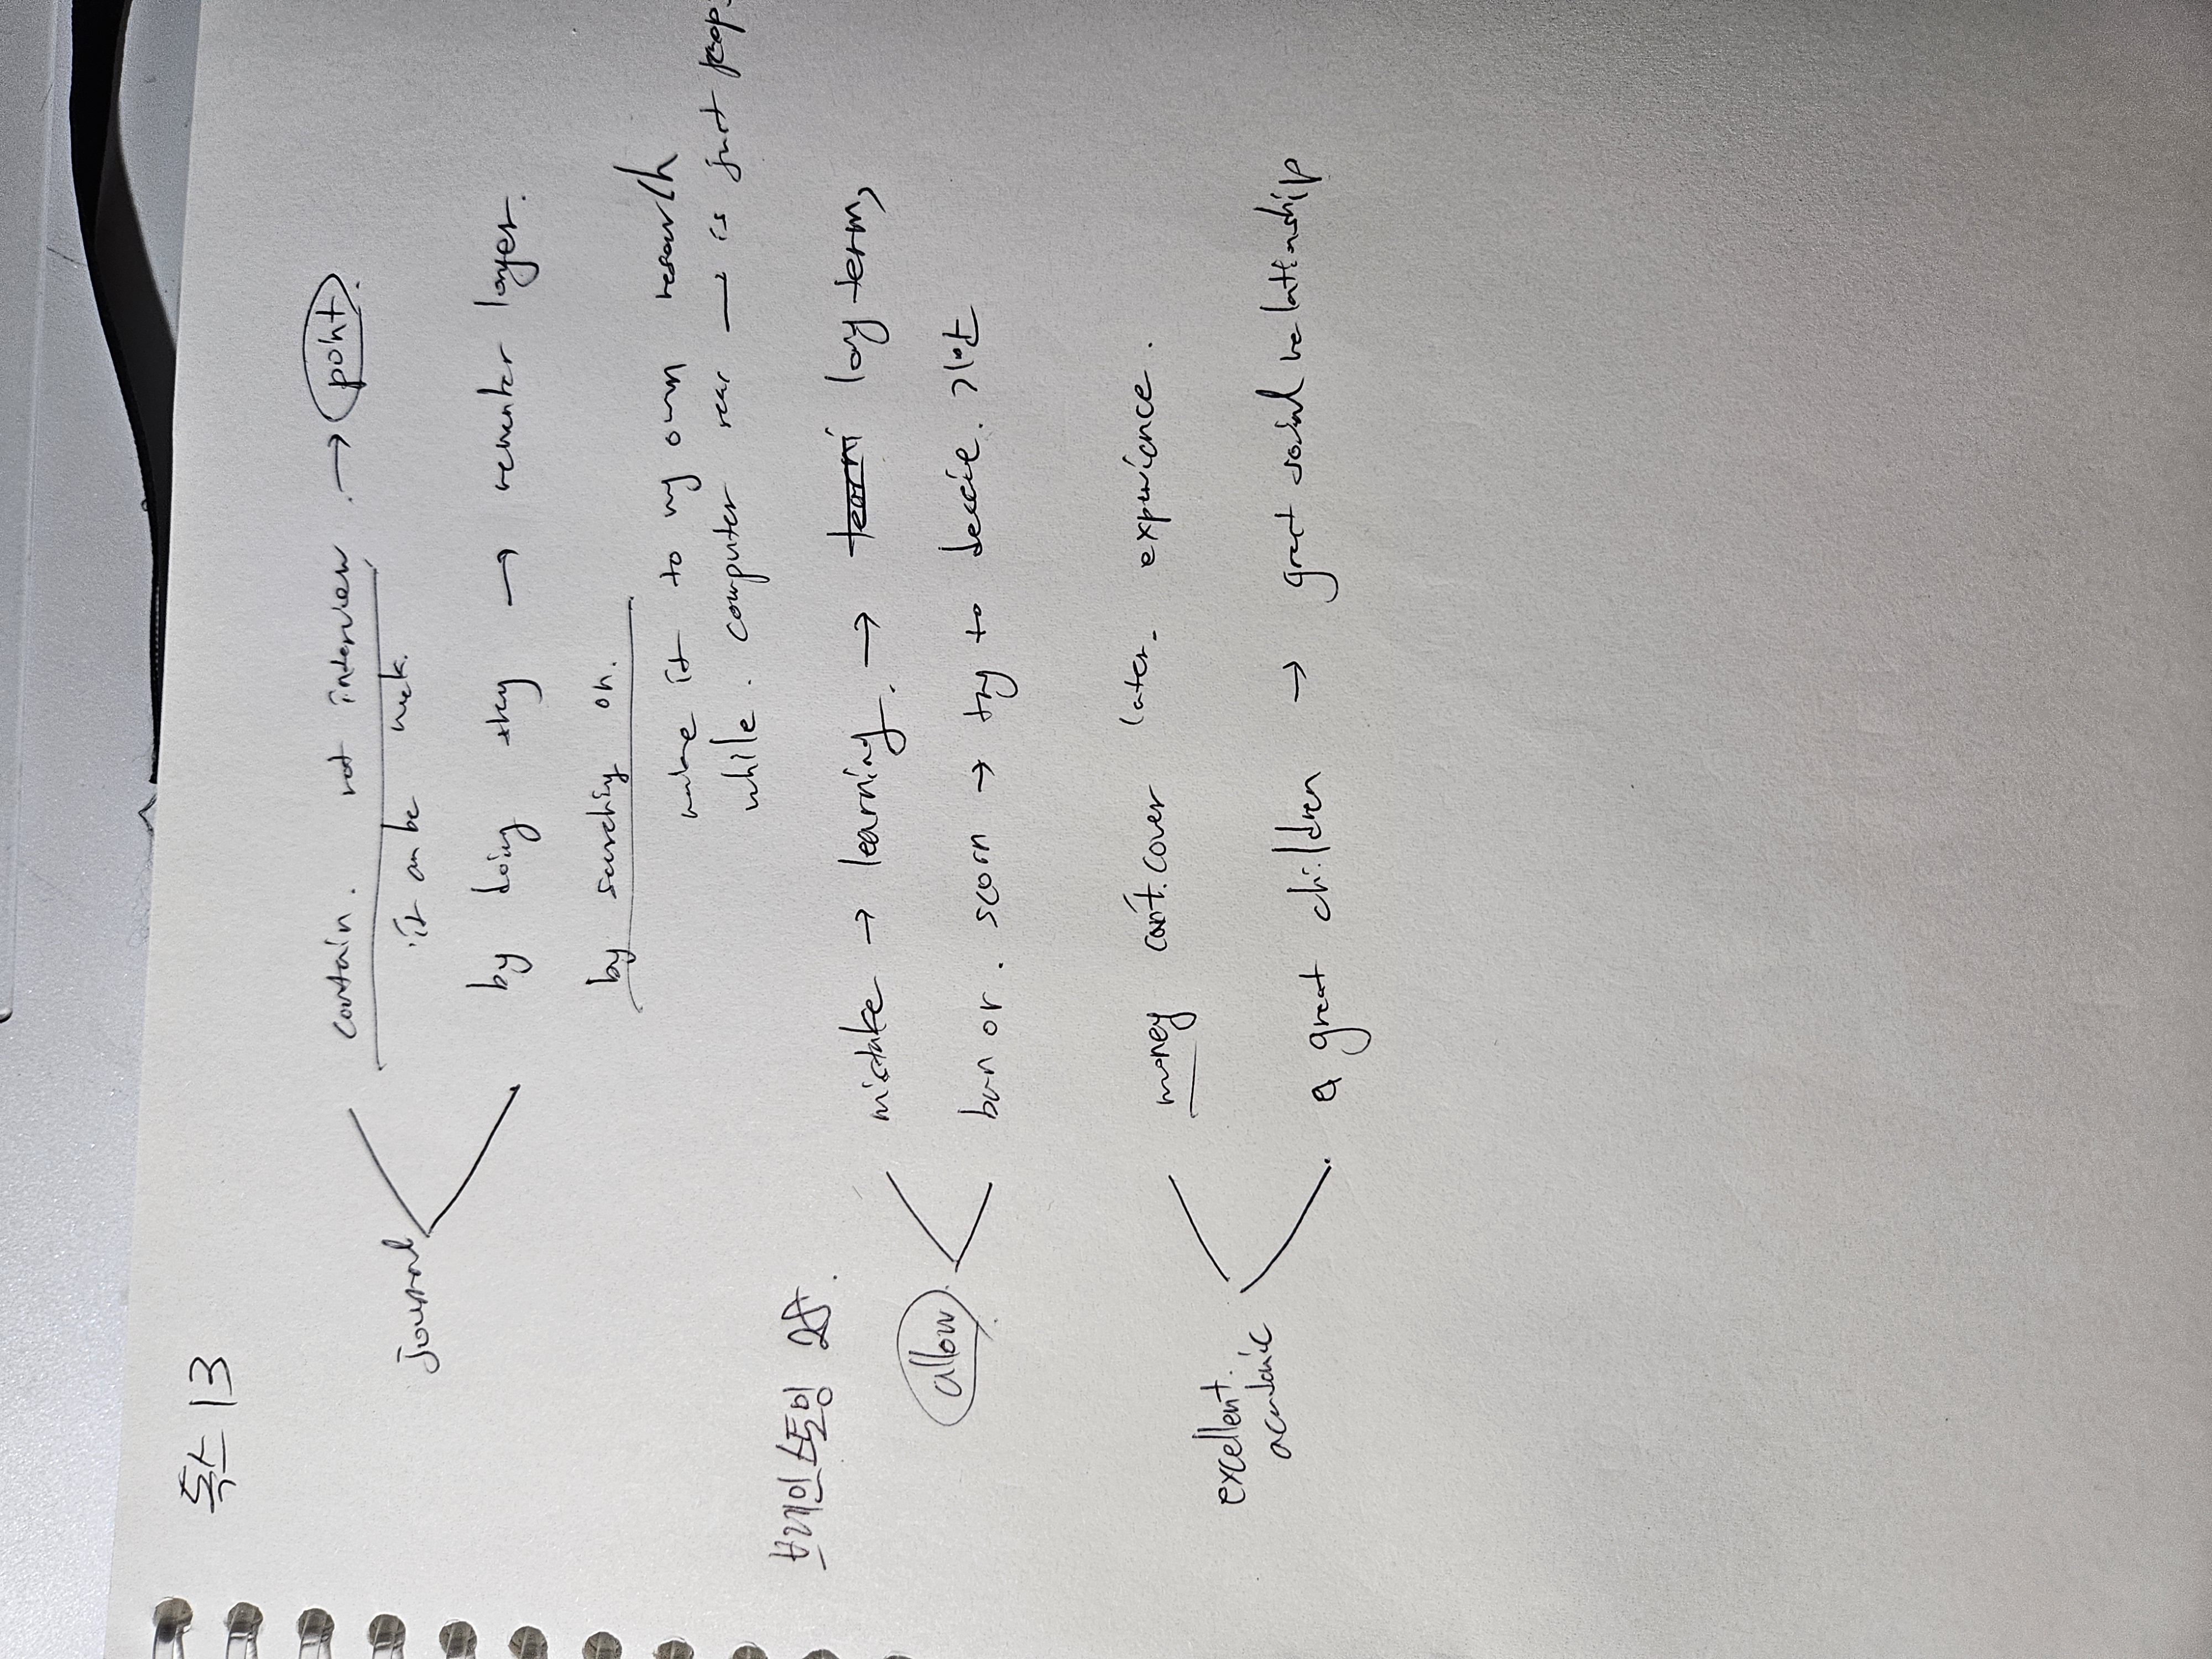 톡스 13
journal
contain. not interview. → point.
it can be weak.
by doing they → remember longer.
by searching on.
make it to my own research
while. computer rear → is just pop
브레인스토밍 2주.
allow.
mistake → learning. → long term,
ban or. scorn → try to 기만
excellent. academic
money can't. cover later. experience.
a great children → great social relationship